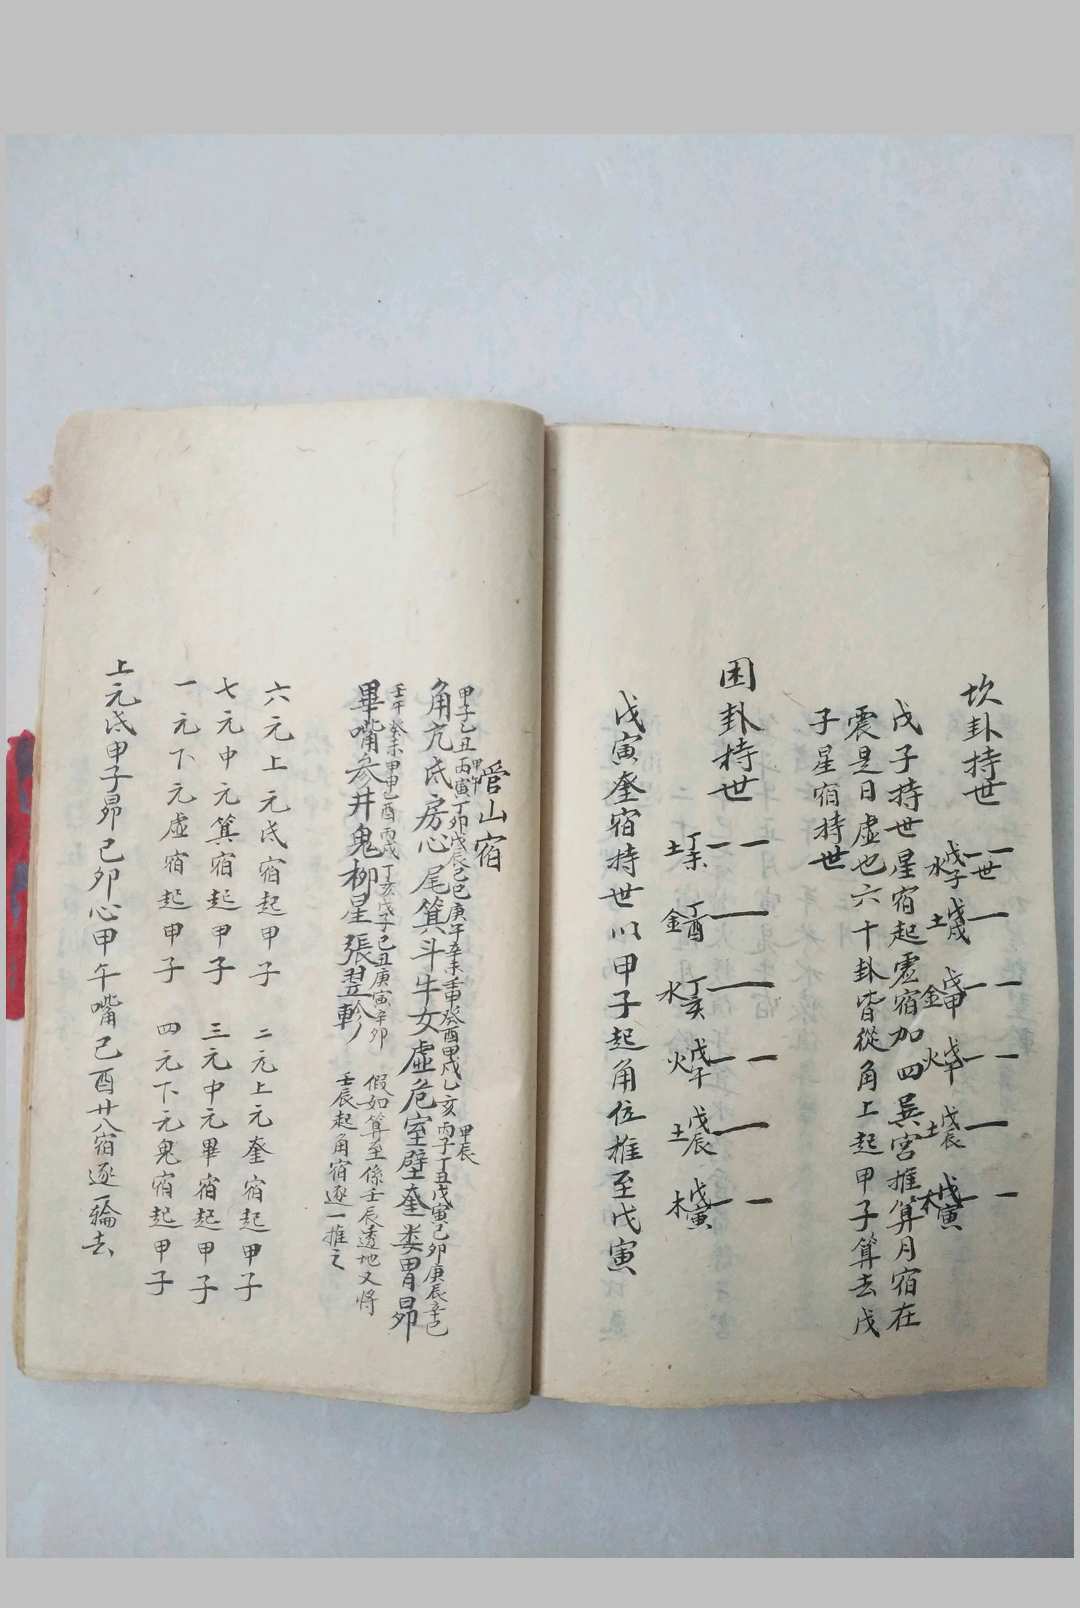 坎卦持世
世
戊子水
戊戌土
戊申金
戊午火
戊辰土
戊寅木
戊子持世星宿起虛宿加四巽宮推算月宿在
震是日虛也六十卦皆從角上起甲子算去戊
子星宿持世
困卦持世
丁未土
丁酉金
丁亥水
戊午火
戊辰土
戊寅木
戊寅奎宿持世以甲子起角位推至戊寅
管山宿
甲子乙丑丙寅丁卯戊辰己巳庚午辛未壬申癸酉甲戌乙亥丙子丁丑戊寅己卯庚辰辛巳
甲午
甲辰
角亢氐房心尾箕斗牛女虛危室壁奎婁胃昴
壬午癸未甲申乙酉丙戌丁亥戊子己丑庚寅辛卯
畢嘴參井鬼柳星張翌軫
假如算至係壬辰透地又將
壬辰起角宿逐一推之
六元上元氐宿起甲子 二元上元奎宿起甲子
七元中元箕宿起甲子 三元中元畢宿起甲子
一元下元虛宿起甲子 四元下元鬼宿起甲子
上元氐甲子昴己卯心甲午嘴己酉廿八宿逐一輪去